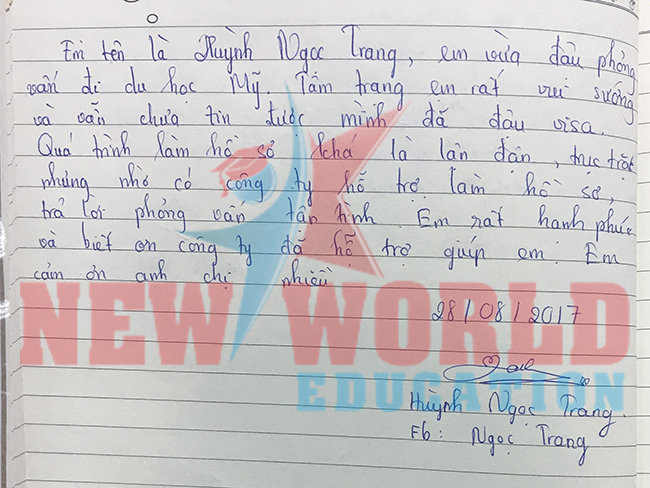 Em tên là Huỳnh Ngọc Trang, em vừa đậu phỏng
vấn đi du học Mỹ. Tâm trạng em rất vui sướng
và vẫn chưa tin được mình đã đậu visa.
Quá trình làm hồ sơ khá là lận đận, trục trặc
nhưng nhờ có công ty hỗ trợ làm hồ sơ,
trả lời phỏng vấn tận tình. Em rất hạnh phúc
và biết ơn công ty đã hỗ trợ giúp em. Em
cảm ơn anh chị nhiều
28/08/2017
NEW WORLD
EDUCATION
Huỳnh Ngọc Trang.
Fb: Ngọc Trang